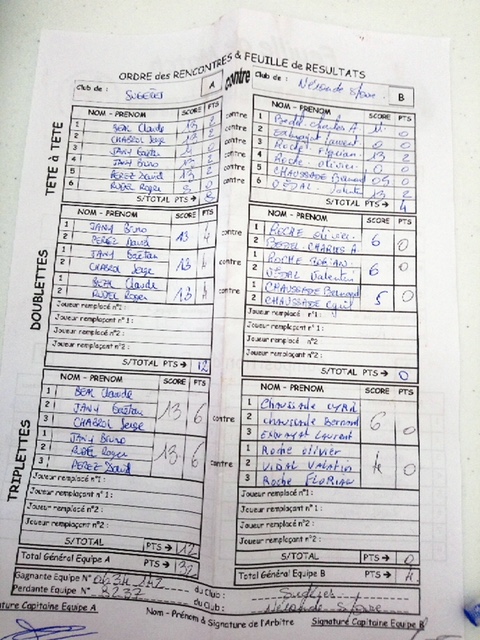 ORDRE des RENCONTRES & FEUILLE de RESULTATS
Club de : A contre Club de : B
TETE à TETE
NOM - PRENOM SCORE PTS contre NOM - PRENOM SCORE PTS
1 BEAL Claude 13 2 contre 1 Charles A 11 0
2 CHABROL Serge 13 2 contre 2 Laurent 0 0
3 JANY Gaëtan 0 contre 3 Roche Florian 13 2
4 JANY Bruno 2 contre 4 Roche Olivier 0
5 PEREZ David 13 2 contre 5 CHAUSSADE Bernard 05 0
6 RUDEL Roger 8 0 contre 6 VIDAL 13 2
S/TOTAL PTS → 8 S/TOTAL PTS → 4
DOUBLETTES
NOM - PRENOM SCORE PTS NOM - PRENOM SCORE PTS
1 JANY Bruno 13 4 contre 1 ROCHE Olivier 6 0
2 PEREZ David 2 CHARLES A.
1 JANY Gaëtan 13 4 contre 1 ROCHE 6 0
2 CHABROL Serge 2 VIDAL Valentin
1 BEAL Claude 13 4 contre 1 CHAUSSADE Bernard 5 0
2 RUDEL Roger 2 CHAUSSADE Cyril
Joueur remplacé n°1 :
Joueur remplaçant n° 1 :
Joueur remplacé n°2 :
Joueur remplaçant n°2 :
S/TOTAL PTS → 12 S/TOTAL PTS → 0
TRIPLETTES
NOM - PRENOM SCORE PTS NOM - PRENOM SCORE PTS
1 BEAL Claude 13 6 contre 1 CHAUSSADE CYRIL 6 0
2 JANY Gaëtan 2 CHAUSSADE Bernard
3 CHABROL Serge 3 Laurent
1 JANY Bruno 13 6 contre 1 Roche Olivier 0
2 RUDEL Roger 2 VIDAL VALATIN
3 PEREZ David 3 Roche FLORIAN
Joueur remplacé n°1 :
Joueur remplaçant n°1 :
Joueur remplacé n°2 :
Joueur remplaçant n°2 :
S/TOTAL PTS → 12 S/TOTAL PTS → 0
Total Général Equipe A PTS → 32 Total Général Equipe B PTS → 4
Gagnante Equipe N° du Club :
Perdante Equipe N° du Club :
Signature Capitaine Equipe A Nom - Prénom & Signature de l'Arbitre Signature Capitaine Equipe B